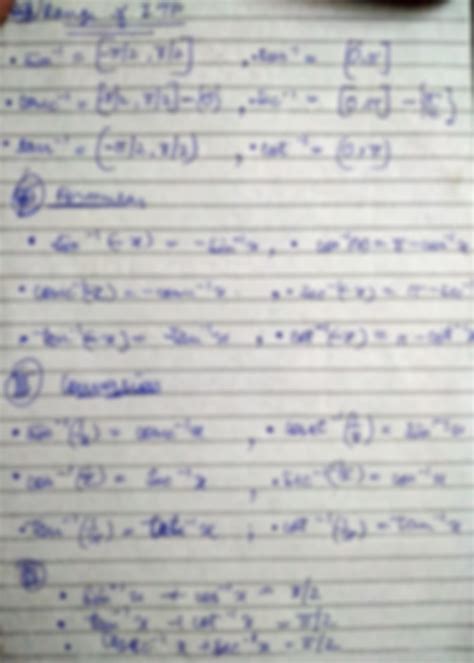 Range of ITF
• sin⁻¹ = [-π/2, π/2] , • cos⁻¹ = [0, π]
• cosec⁻¹ = [π/2, π/2] - {0} , • sec⁻¹ = [0, π] - {π/2}
• tan⁻¹ = (-π/2, π/2) , • cot⁻¹ = (0, π)
Formulae
• sin⁻¹(-x) = -sin⁻¹x , • cos⁻¹(-x) = π - cos⁻¹x
• cosec⁻¹(-x) = -cosec⁻¹x , • sec⁻¹(-x) = π - sec⁻¹
• tan⁻¹(-x) = tan⁻¹x , • cot⁻¹(-x) = π - cot⁻¹x
Conversion
• sin⁻¹(1/x) = cosec⁻¹x , • cosec⁻¹(1/x) = sin⁻¹x
• cos⁻¹(1/x) = sec⁻¹x , • sec⁻¹(1/x) = cos⁻¹x
• tan⁻¹(1/x) = cot⁻¹x , • cot⁻¹(1/x) = tan⁻¹x
• sin⁻¹x + cos⁻¹x = π/2
• tan⁻¹x + cot⁻¹x = π/2
• cosec⁻¹x + sec⁻¹x = π/2